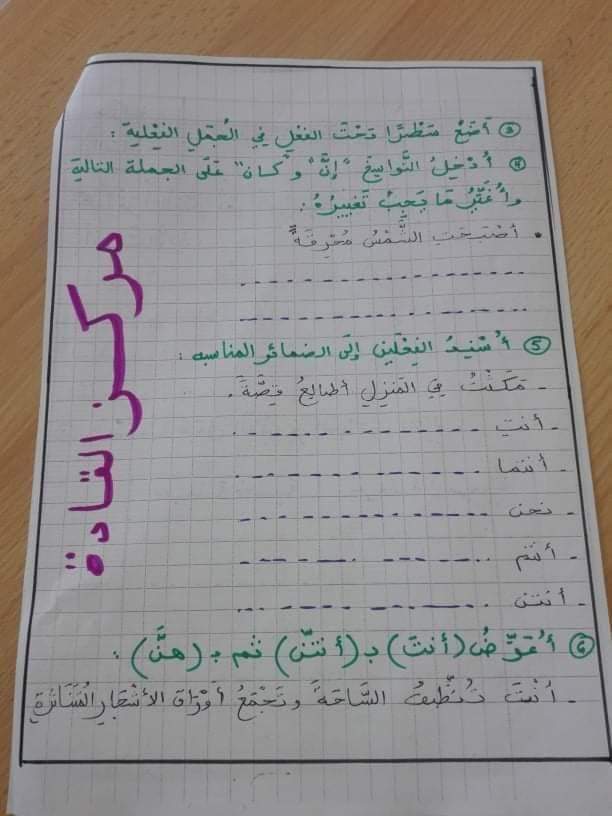 ③ أَضَعُ سَطْرًا تَحْتَ الفِعْلِ فِي الجُمَلِ الفِعْلِيَّةِ :
④ أُدْخِلُ النَّوَاسِخَ "إِنَّ" و "كَانَ" عَلَى الجملة التالية
وأُغَيِّرُ مَا يَجِبُ تَغْيِيرُهُ :
• أَصْبَحَتِ الشَّمْسُ مُحْرِقَةً
⑤ أُسْنِدُ الفِعْلَيْنِ إِلَى الضمائر المناسبه :
- مَكَثْتُ فِي المَنْزِلِ أُطَالِعُ قِصَّةً .
- أنتِ
- أنتما
- نحن
- أنتم
- أنتن
⑥ أُعَوِّضُ (أنتَ) بـ (أنتنّ) ثم بـ (هنَّ) :
- أَنْتَ تُنَظِّفُ السَّاحَةَ وتَجْمَعُ أَوْرَاقَ الأَشْجَارِ المُتَنَاثِرَةِ
مركز القادة